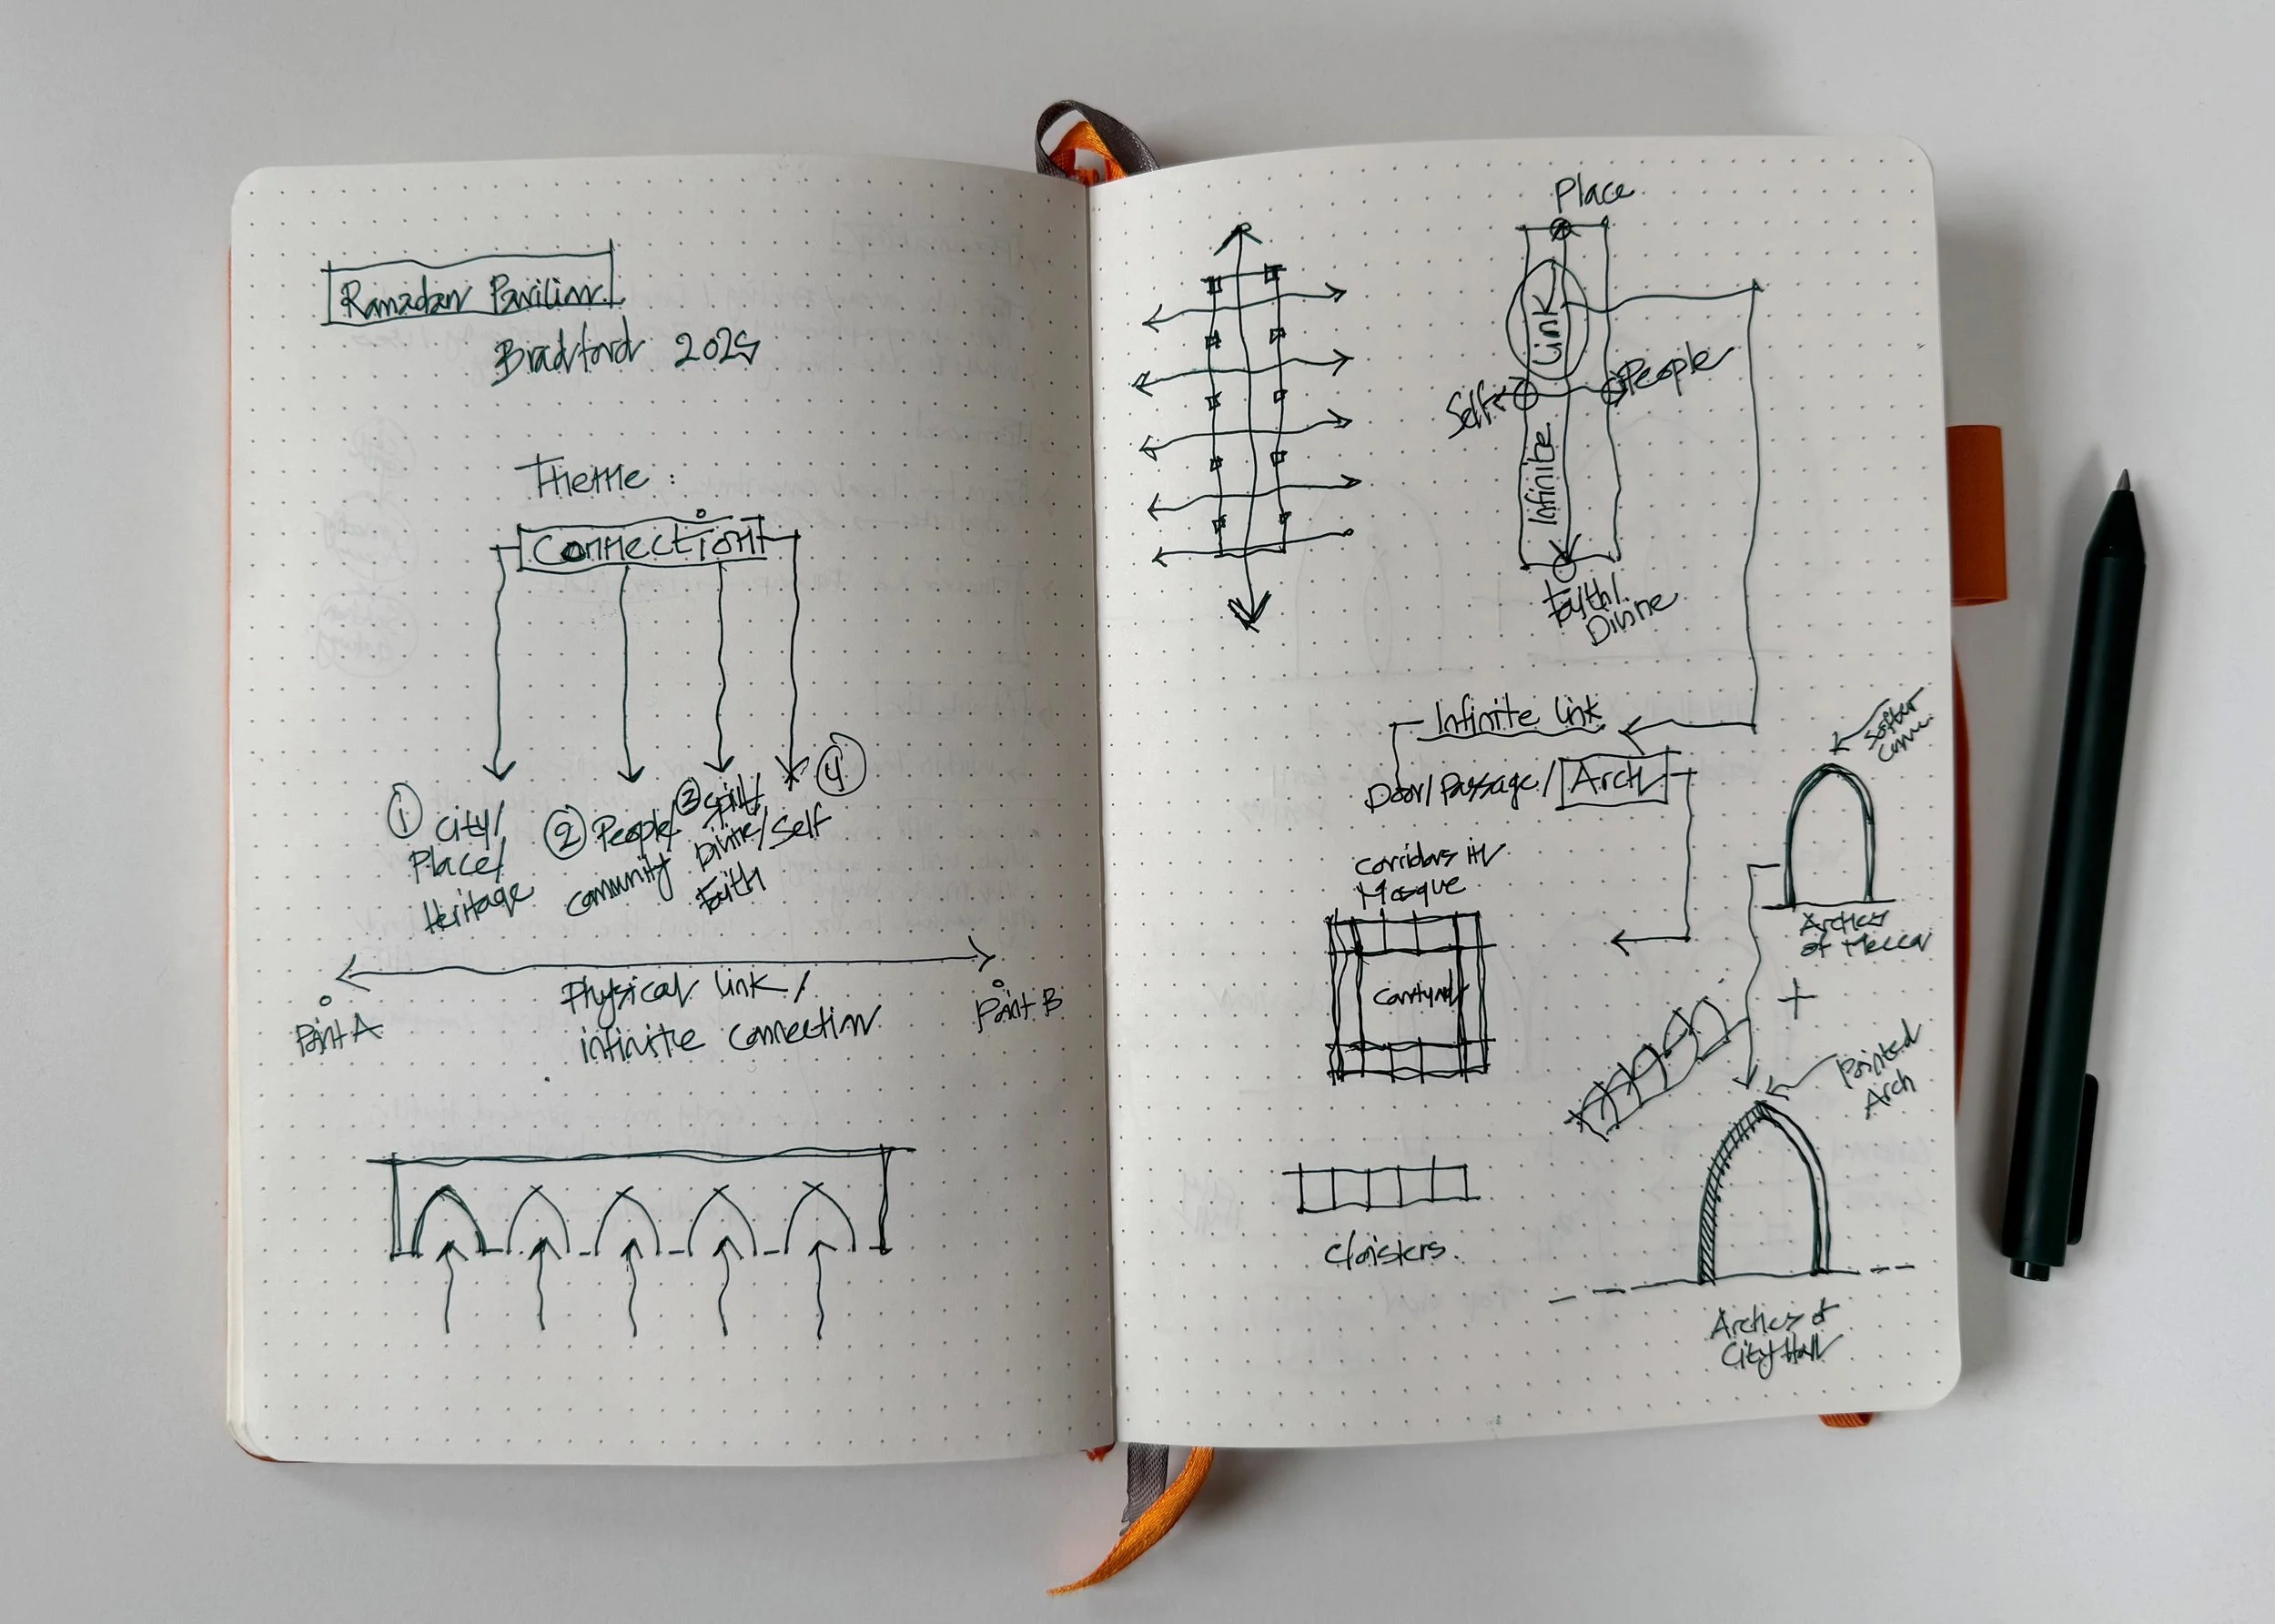 Ramadan Pavilion
Bradford 2025
Theme:
Connection
① City/
Place/
Heritage
② People/
community
③ Spirit/
Divine/
Faith
④
Self
Point A
Physical link/
infinite connection
Point B
Place
Link
Self
People
Infinite
Faith/
Divine
Infinite link
Door/Passage/Arch
Softer
Corridors in
Mosque
Courtyard
Arches
of Mecca
+
Pointed
Arch
Cloisters.
Arches of
City Hall